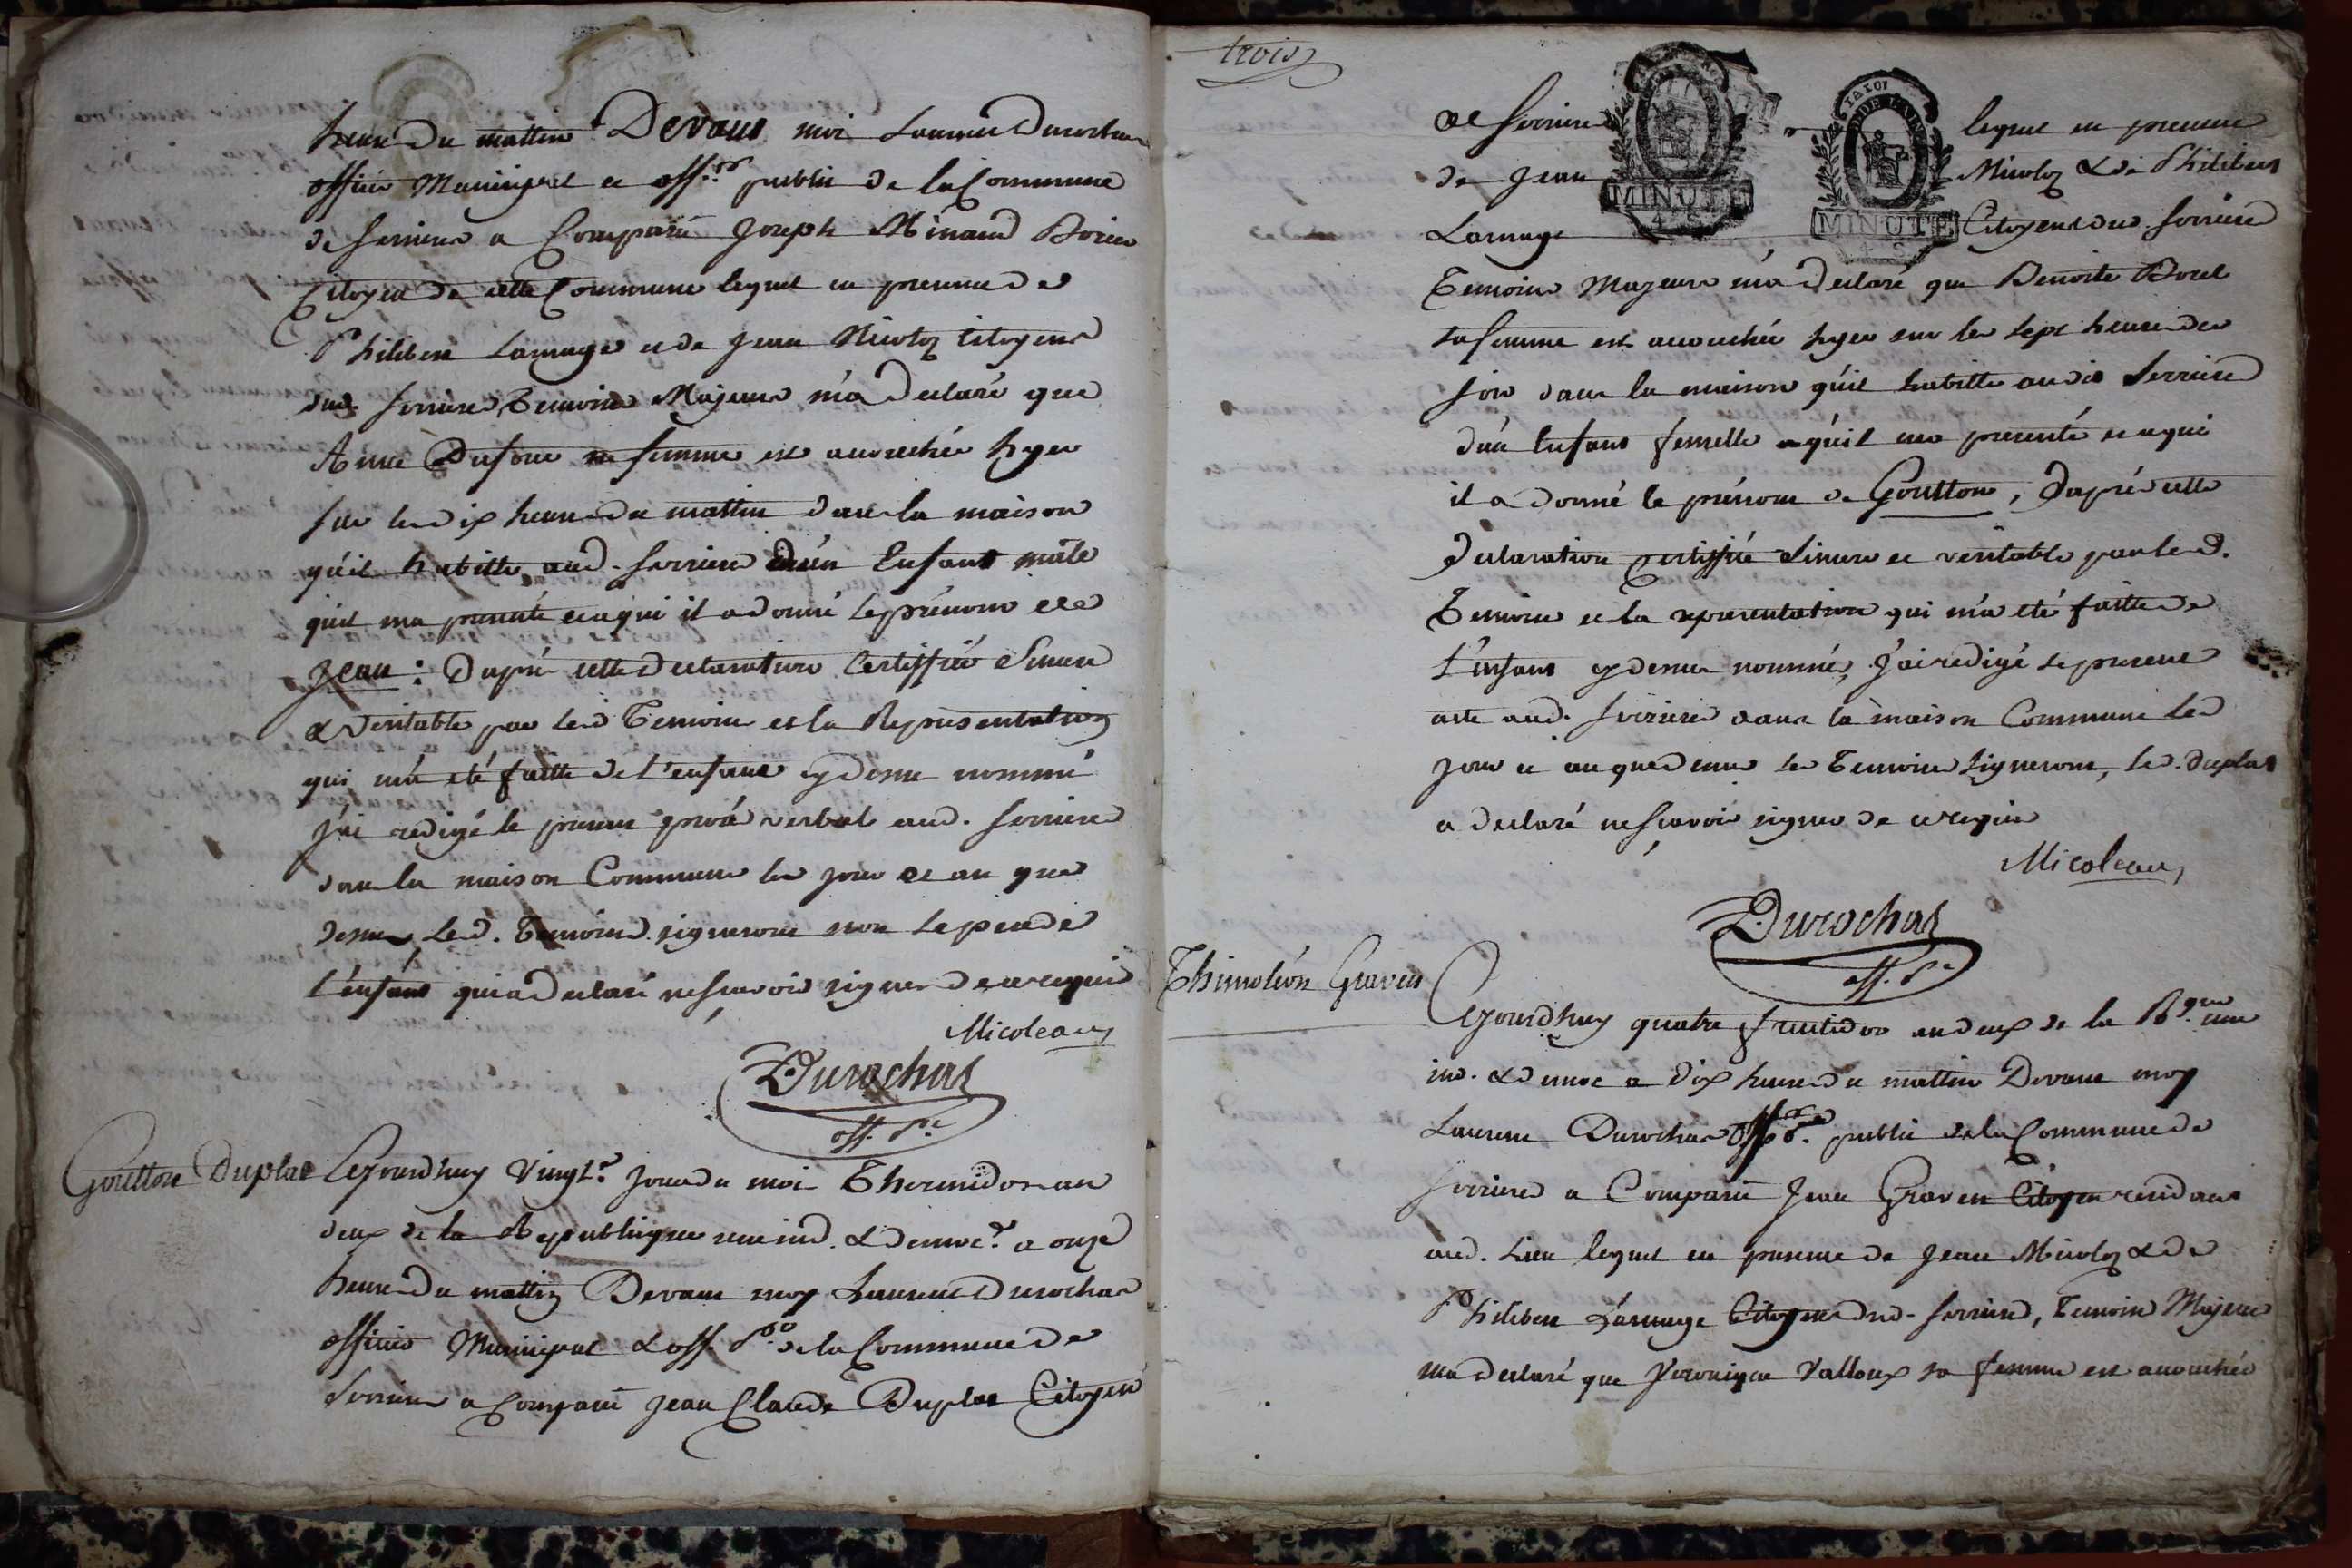 heure du mattin Devant moi Laurent Durochas
officier Municipal et off.er public de la Commune
de Serriere a Comparu Joseph Minaud
Citoyen de cette Commune lequel en presence de
Philibert Lamage et de Jean Nicoloz Citoyens
dud. Serriere Temoins Majeurs m'a declaré que
Anne Dufour sa femme est accouchée hyer
sur les dix heures du mattin dans la maison
qu'il habitte aud. Serriere d'un Enfant mâle
qu'il ma presenté et a qui il a donné le prénom de
Jean : D'apré cette declaration Certiffiée Sincere
& veritable par les d. Temoins et la Representation
qui m'a eté faitte de l'enfant cy dessu nommé
j'ai redigé le present procé verbal aud. Serriere
dans la maison Commune les jour et an que
dessu, les d. Temoins signeront non le pere de
l'enfant qui a declaré ne scavoir signer de ce requis
Micoleau
Durochas
off. p.c
Goutton Duplas
Cejourdhuy Vingt.e jour du moi Thermidor an
deux de la Republique une ind. & democ.e a onze
heure du mattin Devant moy Laurent Durochas
officier Municipal & off. p.c de la Commune de
Serriere a Comparu Jean Claude Duplas Citoyen
trois
de Serriere lequel en presence
de Jean Nicoloz & de Philibert
Lamage Citoyens dud. Serriere
MINUTE
MINUTE
Temoins Majeurs m'a declaré que Benoite Borel
sa femme est accouchée hyer sur les sept heure du
soir dans la maison qu'il habitte audit Serriere
d'un Enfant femelle qu'il ma presenté et a qui
il a donné le prénom de Goutton, D'apré cette
declaration certiffiée Sincere et veritable par les d.
Temoins et la representation qui m'a eté faitte de
l'enfant cy dessu nommé, j'ai redigé le present
acte aud. Serriere dans la maison Commune les
jour et an que dessu les Temoins signeront, le d. Duplas
a declaré ne scavoir signer de ce requis
Micoleau
Durochas
off. p.c
Thimoléon Graven
Cejourdhuy quatre fructidor an deux de la R.que une
ind. & democ a dix heure du mattin Devant moy
Laurent Durochas off.er public de la Commune de
Serriere a Comparu Jean Graven Citoyen residant
aud. Lieu lequel en presence de Jean Nicoloz & de
Philibert Lamage Citoyens dud. Serriere, Temoins Majeurs
ma declaré que Veronique Valloux sa femme est accouchée